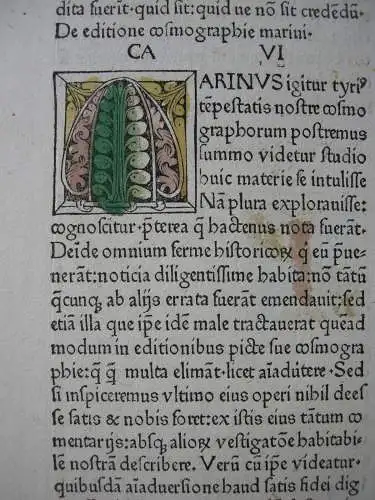 dita fuerāt·quid sit:quid ue nō sit crededū.
De editione cosmographie marini.
CA VI
MARINVS igitur tyriꝰ
tēpestatis nostre cosmo
graphorum postremus
summo videtur studio
huic materie se intulisse
Nā plura explorauisse:
cognoscitur·p̄terea q̄ hactenus nota fuerāt·
Deīde omnium ferme historicoꝝ q̄ eū p̄ue-
nerāt:noticia diligentissime habita:nō tātū
q̄cunqꝫ ab alijs errata fuerāt emendauit:sed
etiā illa que ip̄e idē male tractauerat quead
modum in editionibus picte sue cosmogra
phie:q̄ q̄ multa elimat·licet aīaduṫere·Sed
si inspiceremus vltimo eius operi nihil dees
se satis & nobis foret:ex istis eius tātum co
mentarijs:absqꝫ alioꝝ vestigatōne habitabi-
lē nostrā describere. Verū cū ip̄e videatur·
quibusdā aīaduersione haud satis fidei dig